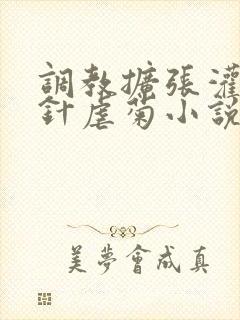 調教擴張灌
針虐菊小說
美夢會成真